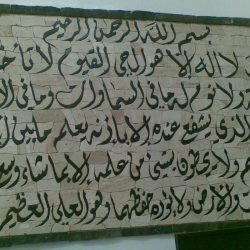 بسم الله الرحمن الرحيم
الله لا اله الا هو الحي القيوم لا تأخذ
ولا نوم له ما في السماوات وما في الا
الذي يشفع عنده الا باذنه يعلم ما بين ا
م ولا يحيطون بشيء من علمه الا بما شاء وسع
والارض ولا يؤده حفظهما وهو العلي العظيم